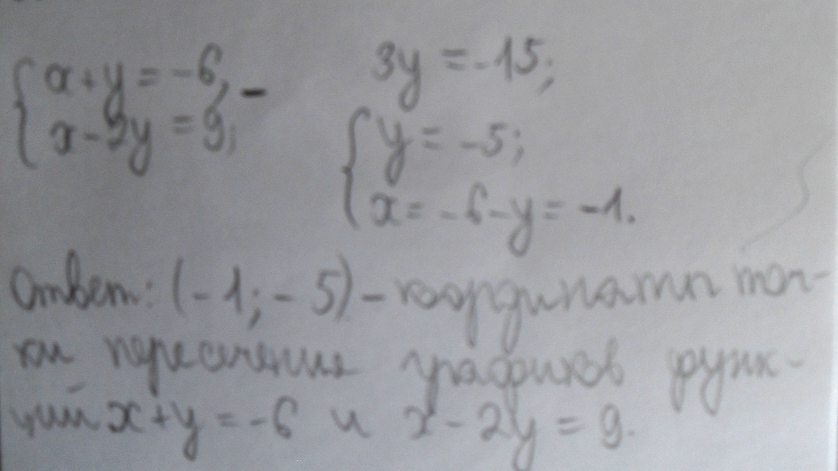 { x+y=-6, -
{ x-2y=9;
3y=-15;
{ y=-5;
{ x=-6-y=-1.
Ответ: (-1;-5)-координаты точ-
ки пересечения графиков функ-
ций x+y=-6 и x-2y=9.